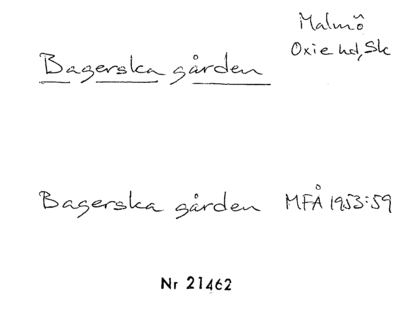 Malmö
Oxie hd, Sk
Bagerska gården
Bagerska gården MFÅ 1953:59
Nr 21462